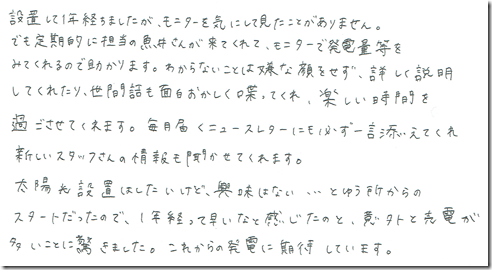 設置して1年経ちましたが、モニターを気にして見たことがありません。
でも定期的に担当の魚井さんが来てくれて、モニターで発電量等を
みてくれるので助かります。わからないことは嫌な顔をせず、詳しく説明
してくれたり、世間話も面白おかしく喋ってくれ、楽しい時間を
過ごさせてくれます。毎月届くニュースレターにも必ず一言添えてくれ
新しいスタッフさんの情報も聞かせてくれます。
太陽光設置はしたいけど、興味はない…とゆう所からの
スタートだったので、1年経って早いなと感じたのと、意外と売電が
多いことに驚きました。これからの発電に期待しています。